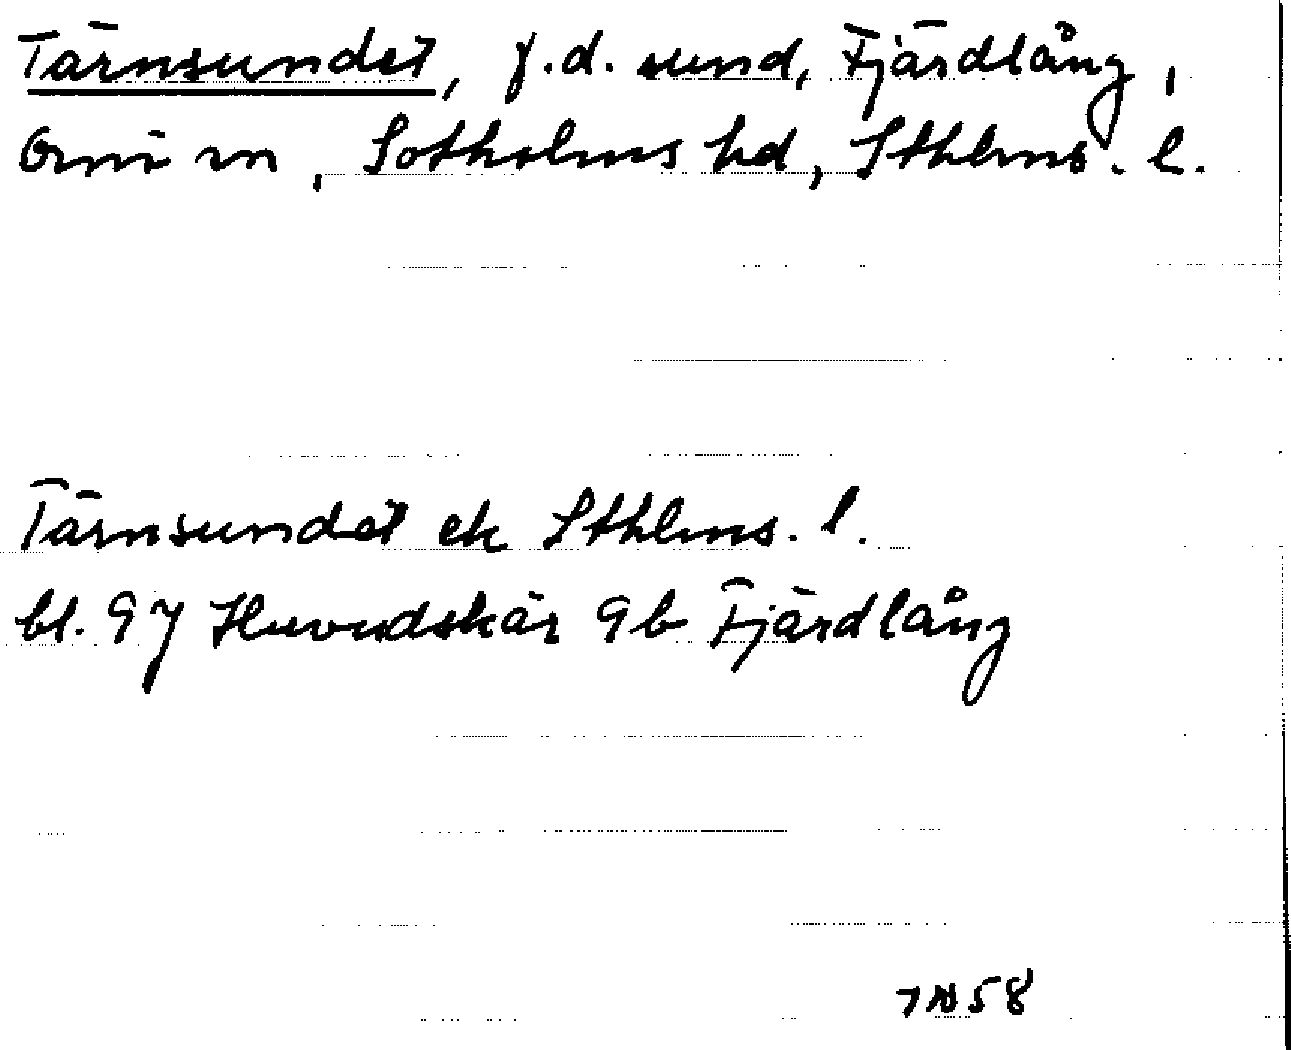 Tärnsundet, f.d. sund, Fjärdlång,
Ornö sn, Sotholms hd, Sthlms. l.
Tärnsundet ek Sthlms. l.
bl. 97 Huvudskär 9b Fjärdlång
58